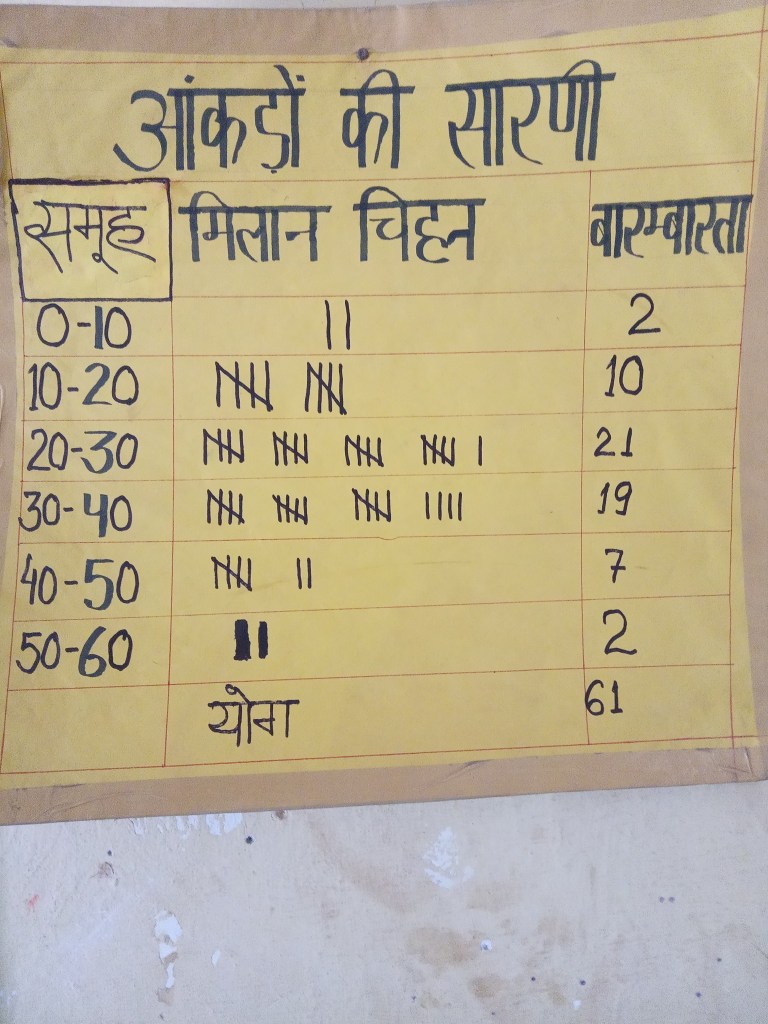 आंकड़ों की सारणी
समूह मिलान चिहन बारम्बारता
0-10 || 2
10-20 𝍸 𝍸 10
20-30 𝍸 𝍸 𝍸 𝍸 | 21
30-40 𝍸 𝍸 𝍸 |||| 19
40-50 𝍸 || 7
50-60 || 2
योग 61